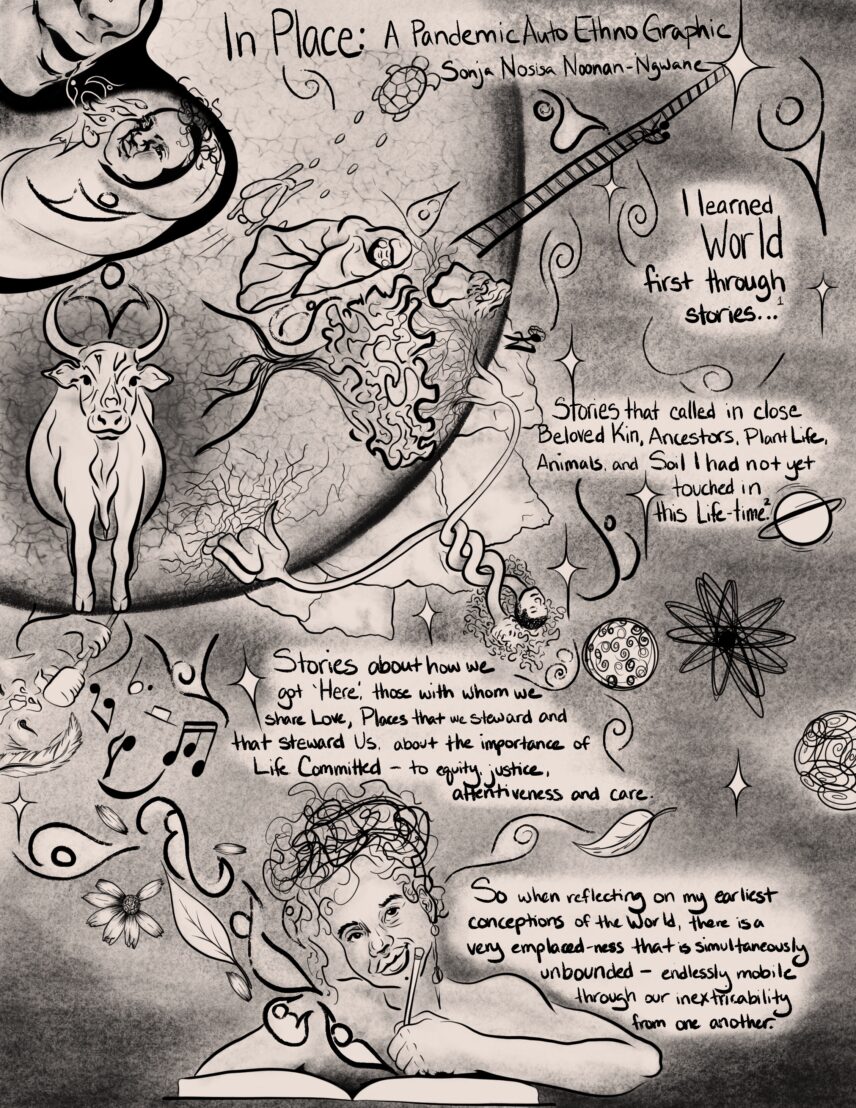 In Place: A Pandemic Auto Ethno Graphic
Sonja Nosisa Noonan-Ngwane
I learned
World
first through
stories...¹
Stories that called in close
Beloved Kin, Ancestors, Plant Life,
Animals, and Soil I had not yet
touched in
this Life-time.²
Stories about how we
got 'Here', those with whom we
share Love, Places that we steward and
that steward Us, about the importance of
Life Committed – to equity, justice,
attentiveness and care.
So when reflecting on my earliest
conceptions of the World, there is a
very emplaced-ness that is simultaneously
unbounded – endlessly mobile
through our inextricability
from one another.